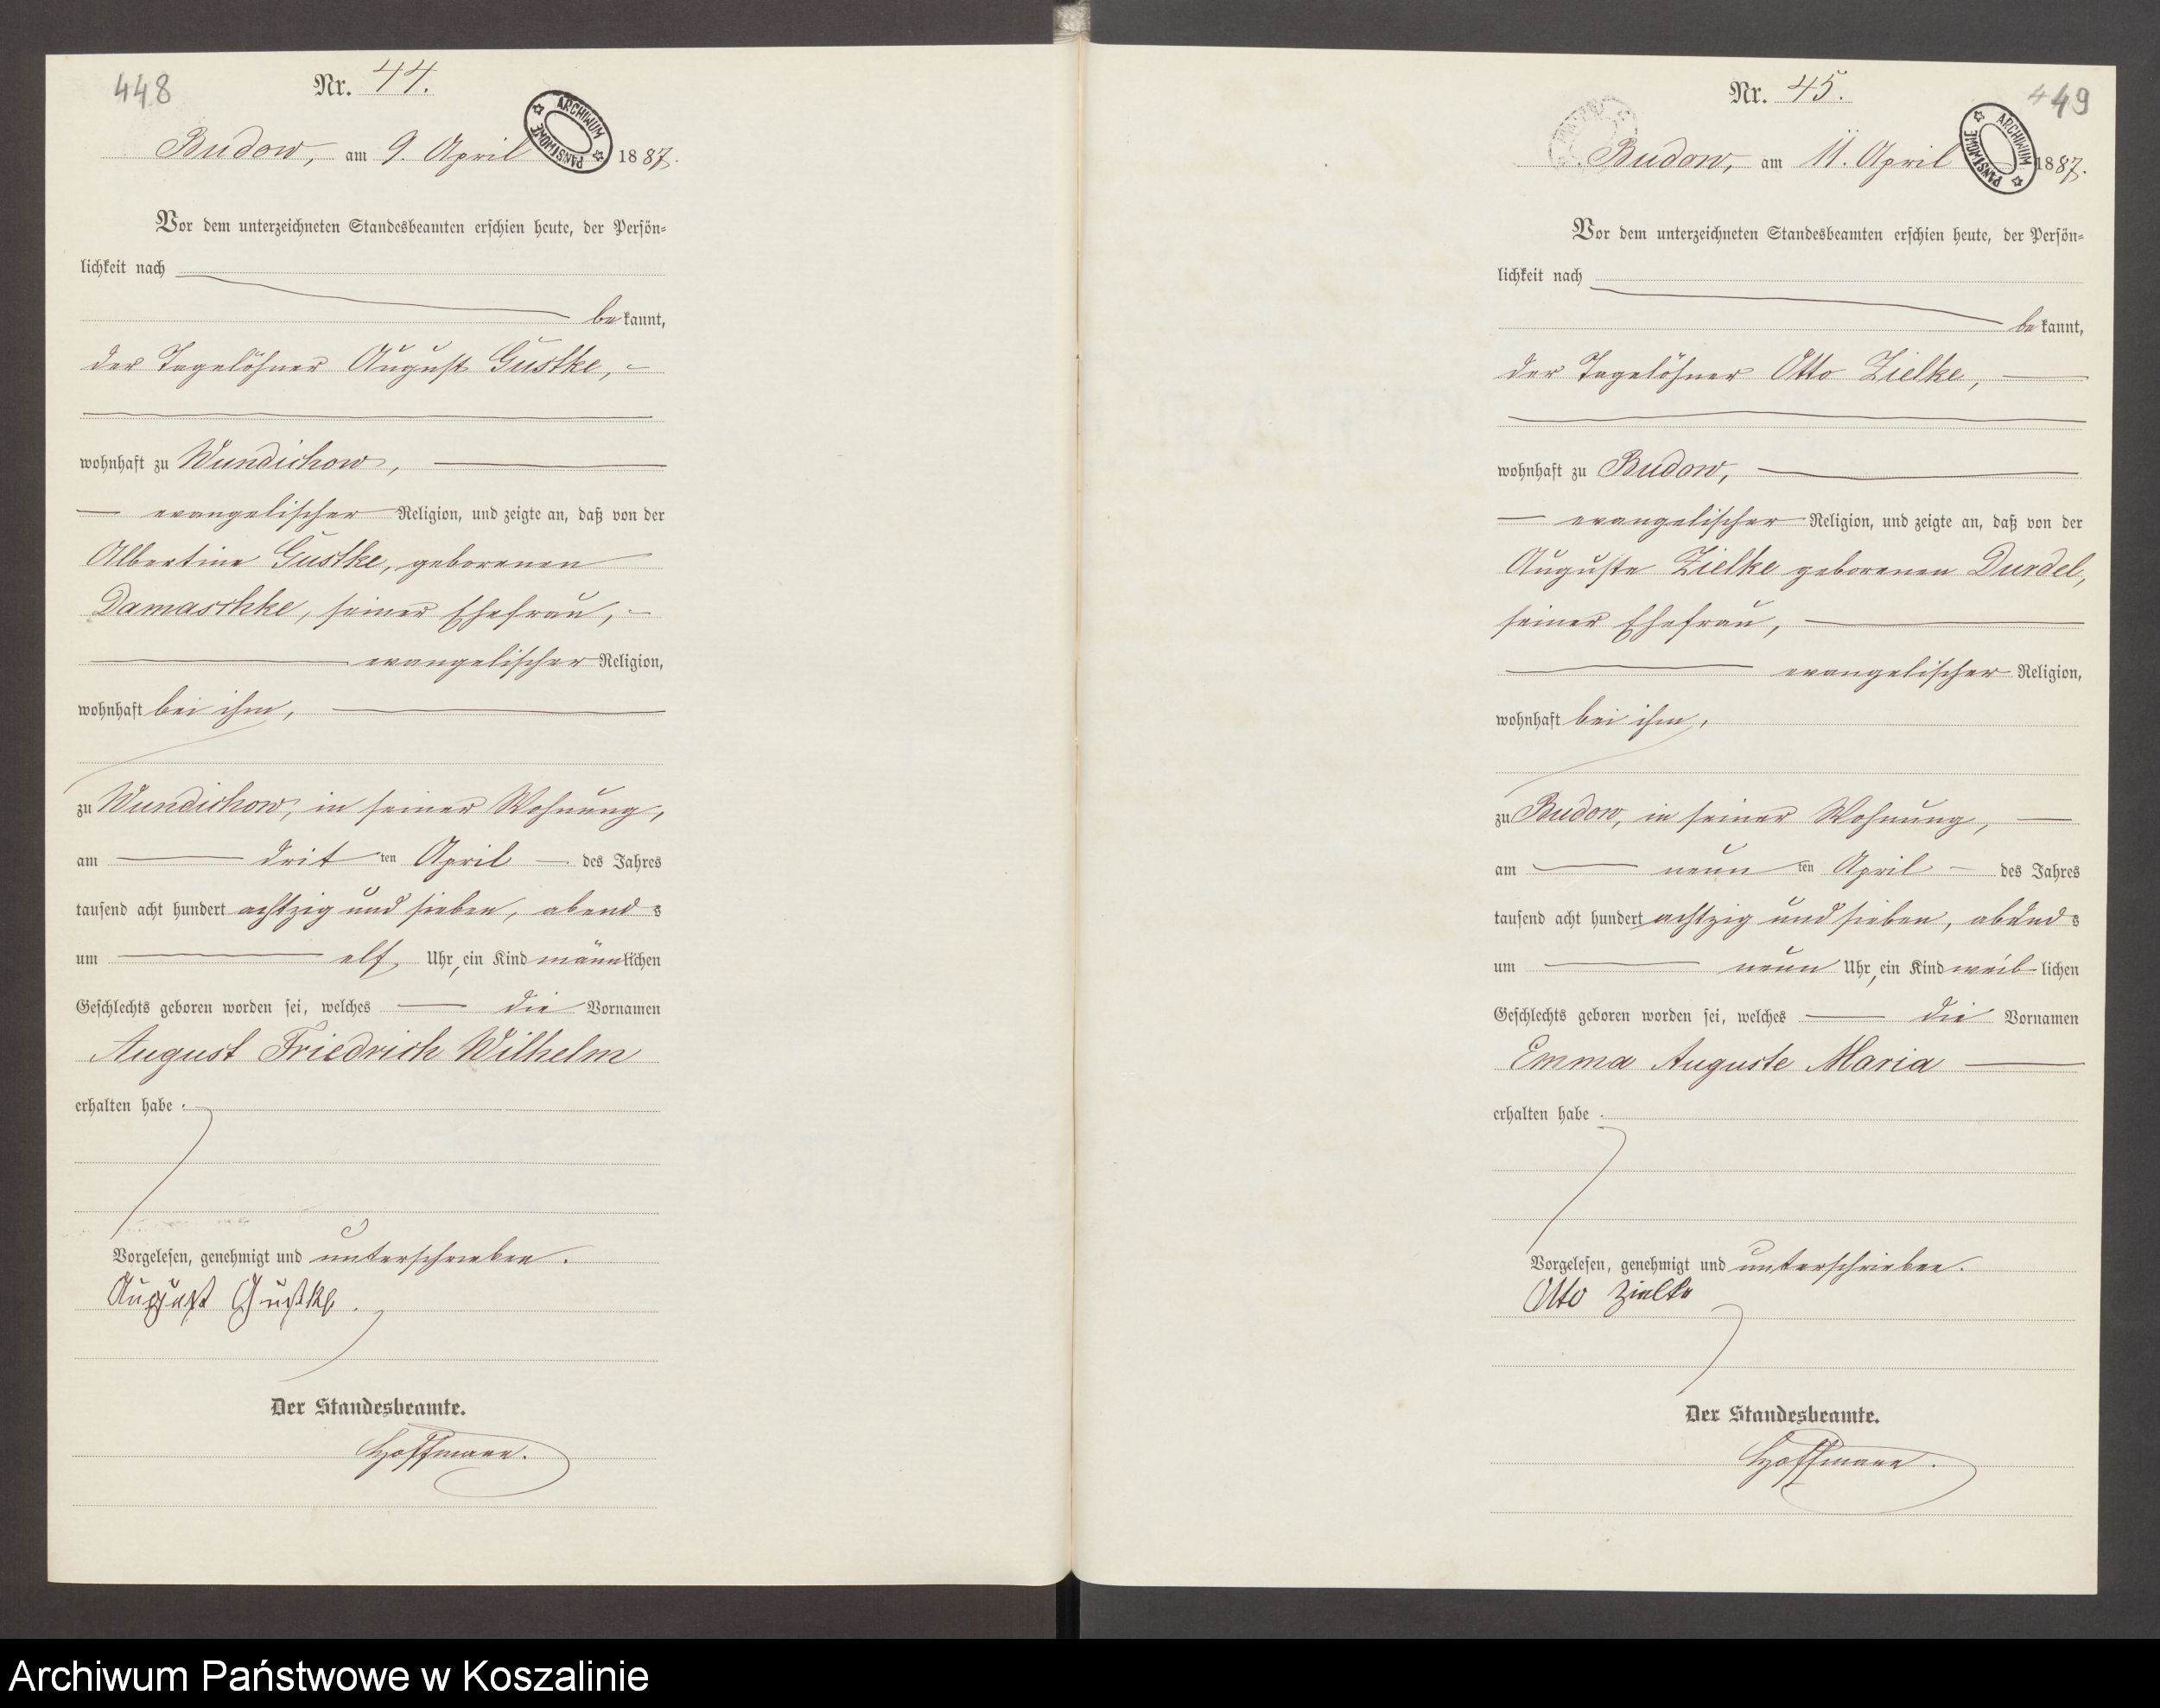 448
Nr. 44.
ARCHIWUM PAŃSTWOWE
Budow, am 9. April 1887.
Vor dem unterzeichneten Standesbeamten erschien heute, der Persön-
lichkeit nach
bekannt,
der Tagelöhner August Gustke,
wohnhaft zu Wundichow,
evangelischer Religion, und zeigte an, daß von der
Albertine Gustke, geborenen
Damaschke, seiner Ehefrau,
evangelischer Religion,
wohnhaft bei ihm,
zu Wundichow, in seiner Wohnung,
am drit ten April des Jahres
tausend acht hundert achtzig und sieben, abends
um elf Uhr, ein Kind männlichen
Geschlechts geboren worden sei, welches die Vornamen
August Friedrich Wilhelm
erhalten habe.
Vorgelesen, genehmigt und unterschrieben.
August Gustke.
Der Standesbeamte.
Hoffmann.
449
Nr. 45.
ARCHIWUM PAŃSTWOWE
Budow, am 11. April 1887.
Vor dem unterzeichneten Standesbeamten erschien heute, der Persön-
lichkeit nach
bekannt,
der Tagelöhner Otto Zielke,
wohnhaft zu Budow,
evangelischer Religion, und zeigte an, daß von der
Auguste Zielke geborenen Durdel,
seiner Ehefrau,
evangelischer Religion,
wohnhaft bei ihm,
zu Budow, in seiner Wohnung,
am neun ten April des Jahres
tausend acht hundert achtzig und sieben, abends
um neun Uhr, ein Kind weiblichen
Geschlechts geboren worden sei, welches die Vornamen
Emma Auguste Maria
erhalten habe.
Vorgelesen, genehmigt und unterschrieben.
Otto Zielke
Der Standesbeamte.
Hoffmann.
Archiwum Państwowe w Koszalinie